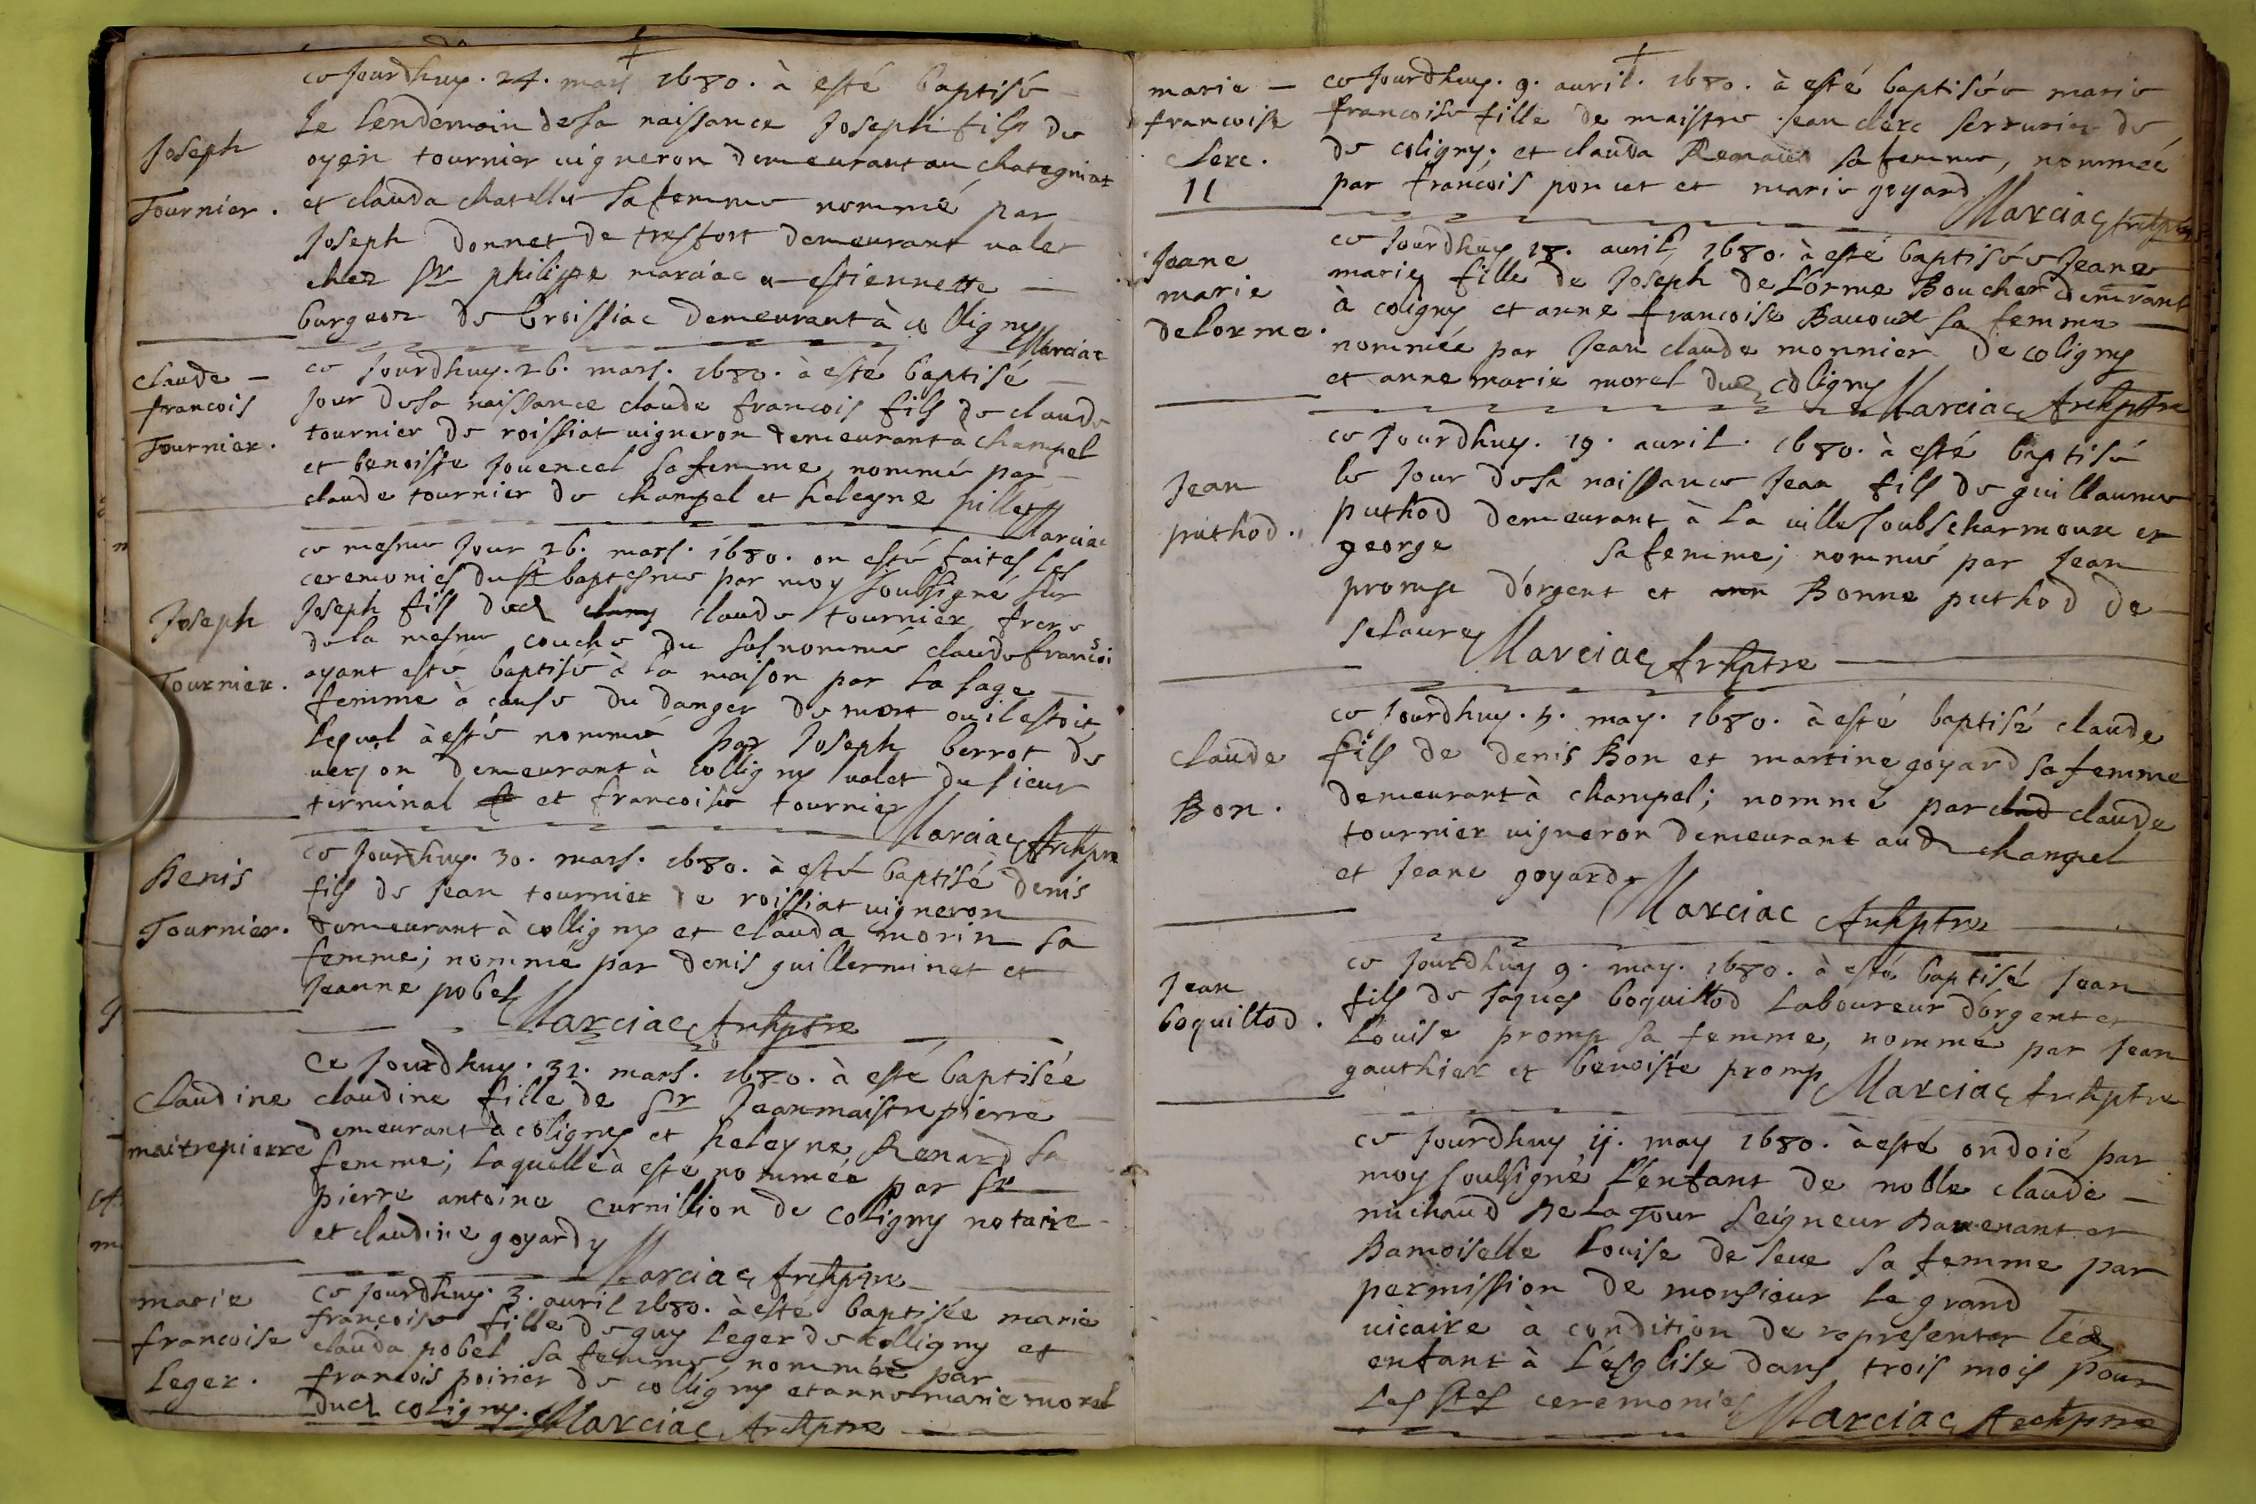 Joseph
Tournier.
ce Jourdhuy. 24. mars 1680. à esté baptisé
le lendemain de sa naissance Joseph fils de
oyen tournier uigneron demeurant au chategniat
et clauda chatellet sa femme nommé par
Joseph donnet de tresfort demeurant ualet
chez Sr philippe marciac et estiennette
burgeon de broissiac demeurant à colligny
Marciac
claude
francois
Tournier.
ce Jourdhuy. 26. mars. 1680. à esté baptisé
Jour de sa naissance claude francois fils de claude
tournier de roissiat uigneron demeurant à champel
et benoiste Jouencel sa femme, nommé par
claude tournier de champel et heleyne pillet
Marciac
Joseph
Tournier.
ce mesme Jour 26. mars. 1680. on esté faites les
ceremonies du St baptesme par moy soubsigné sur
Joseph fils dud claude tournier frere
de la mesme couche du susnommé claude françoi
ayant esté baptisé à la maison par la sage
femme à cause du danger de mort ou il estoit
lequel à esté nommé par Joseph berrot de
uerjon demeurant à colligny ualet du sieur
terminal et francoise tournier
Marciac Archptre
Denis
Tournier.
ce Jourdhuy. 30. mars. 1680. à esté baptisé denis
fils de Jean tournier de roissiat uigneron
demeurant à colligny et clauda morin sa
femme; nommé par denis guillerminet et
Jeanne pobel
Marciac Archptre
Claudine
maitrepierre
Ce Jourdhuy. 31. mars. 1680. à esté baptisée
claudine fille de Sr Jean maistrepierre
demeurant à coligny et heleyne Renard sa
femme; laquelle à esté nommée par Sr
pierre antoine curnillion de coligny notaire
et claudine goyard
Marciac Archptre
marie
francoise
Leger.
ce Jourdhuy. 3. auril 1680. à esté baptisée marie
françoise fille de guy leger de colligny et
clauda pobel sa femme nommée par
francois poirier de colligny et anne marie morel
dud coligny. Marciac Archptre
marie
francoise
Clerc.
11
ce Jourdhuy. 9. auril. 1680. à esté baptisée marie
francoise fille de maistre Jean clerc serrurier de
de coligny; et clauda Renaud sa femme, nommée
par francois poncet et marie goyard
Marciac Archptre
Jeane
marie
delorme.
ce Jourdhuy 18. auril 1680. à esté baptisée Jeane
marie fille de Joseph de Lorme Boucher demeurant
à coligny et anne francoise Bauoux sa femme
nommée par Jean claude monnier de coligny
et anne marie morel dud coligny Marciac Archptre
Jean
puthod.
ce Jourdhuy. 19. auril. 1680. à esté baptisé
le Jour de sa naissance Jean fils de guillaume
puthod demeurant à la uille soubs charmoux et
george sa femme; nommé par Jean
promp d'orgent et Bonne puthod de
selaure
Marciac Archptre
Claude
Bon.
ce Jourdhuy. 5. may. 1680. à esté baptisé claude
fils de denis Bon et martine goyard sa femme
demeurant à champel; nommé par claude
tournier uigneron demeurant aud champel
et Jeane goyard
Marciac Archptre
Jean
boquillod.
ce Jourdhuy 9. may. 1680. à esté baptisé Jean
fils de Jaques boquillod laboureur d'orgent et
Louise promp sa femme, nommé par Jean
gauthier et benoiste promp Marciac Archptre
ce Jourdhuy ij. may 1680. à esté ondoié par
moy soubsigné l'enfant de noble claude
michaud De La Tour seigneur Dauenant et
Damoiselle Louise de seue sa femme par
permission de monsieur le grand
uicaire à condition de representer led
enfant à l'esglise dans trois mois pour
les Stes ceremonies Marciac Archptre